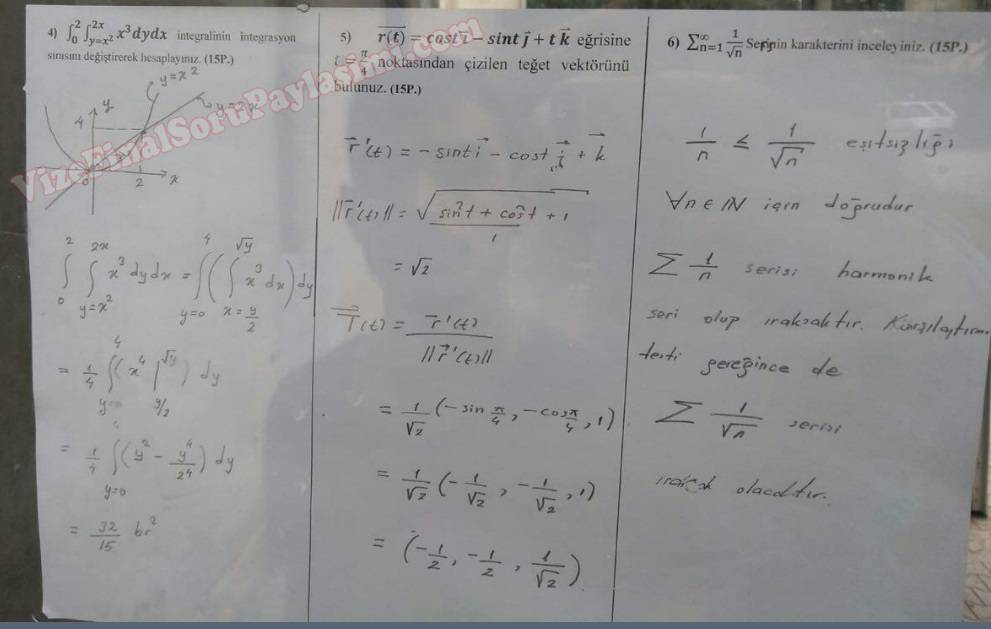 4) ∫₀² ∫_{y=x²}^{2x} x³dydx integralinin integrasyon
sırasını değiştirerek hesaplayınız. (15P.)
y=x²
y=2x
y
4
0
2
x
∫₀² ∫_{y=x²}^{2x} x³ dy dx = ∫_{y=0}^{4} ( ∫_{x=y/2}^{√y} x³ dx ) dy
= 1/4 ∫_{y=0}^{4} ( x⁴ |_{y/2}^{√y} ) dy
= 1/4 ∫_{y=0}^{4} ( y² - y⁴/2⁴ ) dy
= 32/15 br²
5) r(t) = cost i − sint j + t k eğrisine
noktasından çizilen teğet vektörünü
bulunuz. (15P.)
r'(t) = -sint i - cost j + k
||r'(t)|| = √(sin²t + cos²t + 1)
1
= √2
T(t) = r'(t) / ||r'(t)||
= 1/√2 (-sin π/4, -cos π/4, 1)
= 1/√2 (-1/√2, -1/√2, 1)
= (-1/2, -1/2, 1/√2)
6) ∑_{n=1}^{∞} 1/√n Serinin karakterini inceleyiniz. (15P.)
1/n ≤ 1/√n eşitsizliği
∀n∈IN için doğrudur
∑ 1/n serisi harmonik
seri olup ıraksaktır. Karşılaştırma
testi gereğince de
∑ 1/√n serisi
ıraksak olacaktır.
VizeFinalSoruPaylasimi.com